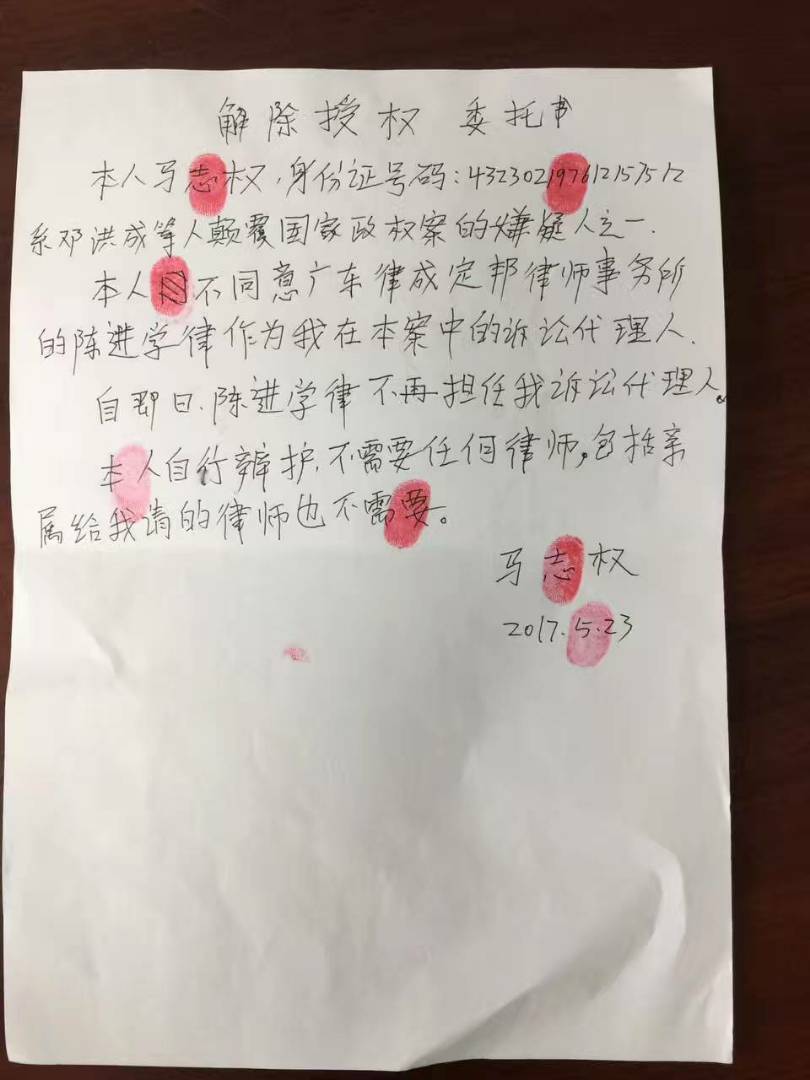 解除授权 委托书
本人马志权,身份证号码:432302197612157512
系邓洪成等人颠覆国家政权案的嫌疑人之一.
本人不同意广东律成定邦律师事务所
的陈进学律作为我在本案中的诉讼代理人.
自即日.陈进学律不再担任我诉讼代理人。
本人自行辩护.不需要任何律师,包括亲
属给我请的律师也不需要。
马志权
2017.5.23